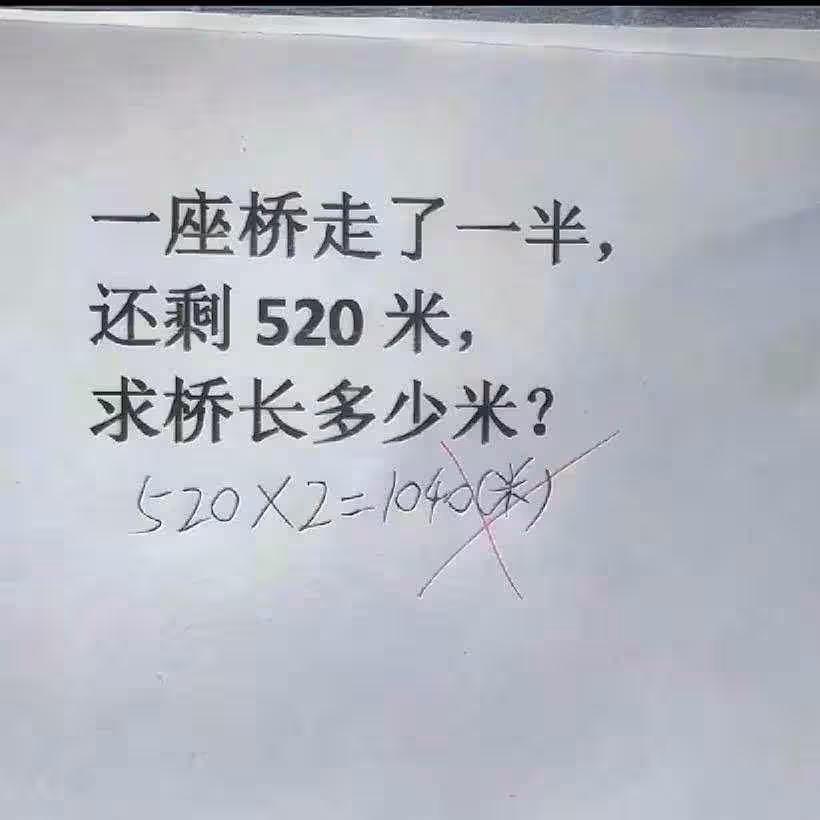 一座桥走了一半，
还剩 520 米，
求桥长多少米？
520×2=1040(米)